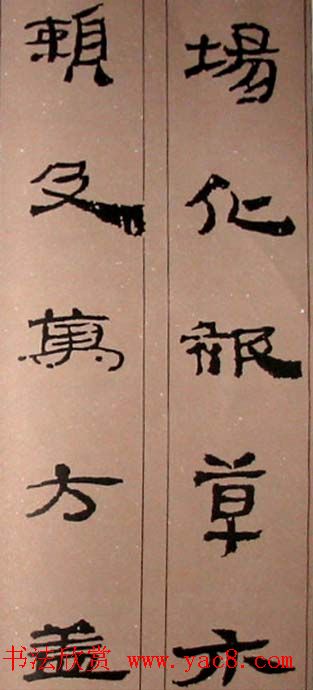 場化被草木
賴及萬方蓋
书法欣赏 www.yac8.com